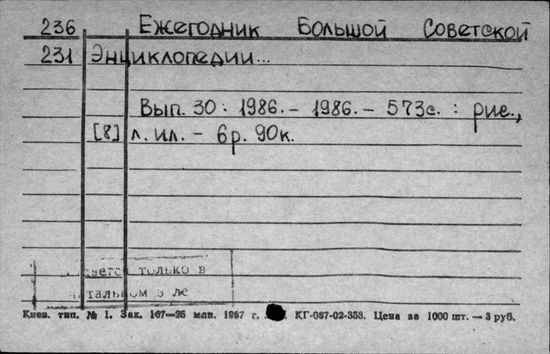 236 Ежегодник Большой Советской
231 Энциклопедии...
Вып. 30 : 1986. – 1986. – 573с. : рис.,
[8] л. ил. – 6р. 90к.
только в
Киев. тип. № 1. Зак. 167—25 млн. 1967 г. КГ-087-02-353. Цена за 1000 шт. — 3 руб.